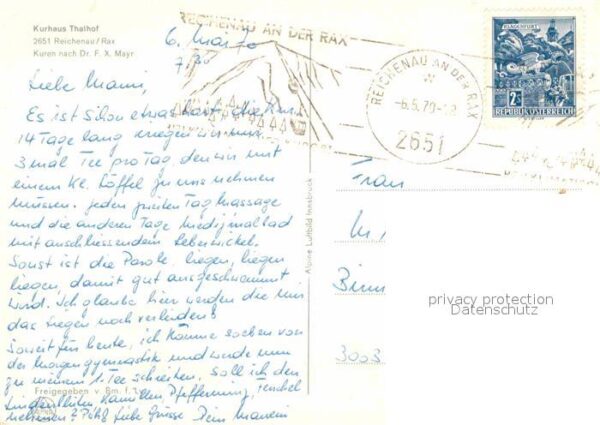 Kurhaus Thalhof
2651 Reichenau/Rax
Kuren nach Dr. F. X. Mayr
REICHENAU AN DER RAX
REICHENAU AN DER RAX
-6.5.70-18
2651
KLAGENFURT
2S
REPUBLIK ÖSTERREICH
6. Mai 70
7.30
Liebe Mami,
Es ist schon etwas hart, die Kur.
14 Tage lang kriegen wir nur
3 mal Tee pro Tag, den wir mit
einem Kl. Löffel zu uns nehmen
müssen. jeden zweiten Tag Massage
und die anderen Tage Medizinalbad
mit anschliessendem Leberwickel.
Sonst ist die Parole liegen, liegen
liegen, damit gut ausgeschwemmt
wird. Ich glaube hier werden die mir
das liegen noch verleiden!
Soweit für heute, ich komme soeben von
der Morgengymnastik und werde nun
zu meinem 1. Tee schreiten, soll ich den
Lindenblüten, Kamillen, Pfefferminz, Fenchel
nehmen? Liebe Grüsse Dein
Frau
M
Binn
3003
Alpine Luftbild Innsbruck
Freigegeben v. Bm. f. L
privacy protection
Datenschutz